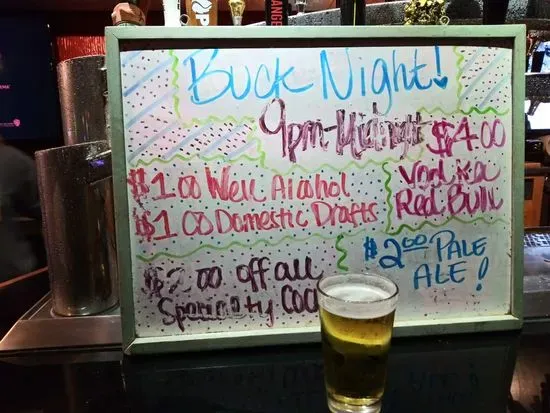 Buck Night!
9pm-Midnight
$4.00
Vodka
Red Bull
$1.00 Well Alcohol
$1.00 Domestic Drafts
$2.00 off all
$2.00 PALE
ALE!